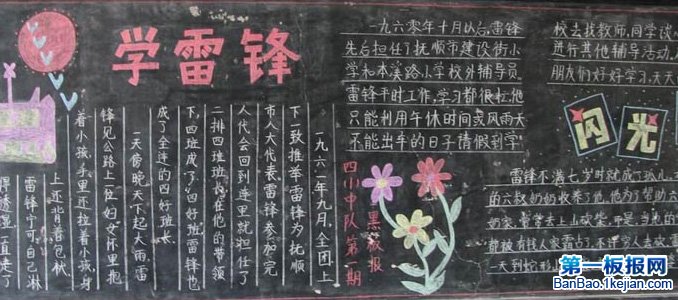 学雷锋
一九六一年九月,全团上
下一致推举雷锋为抚顺
市人大代表雷锋参加完
人代会回到连里就担任了
二排四班班长在他的带领
下,四班成了“四好班雷锋
成了全连的四好班长.
一天傍晚天下起大雨,雷
锋见公路上一位妇女怀里抱
着小孩手里还拉着小孩,身
上还背着包袱
雷锋宁可自己淋
得透湿,一直走了
一九六零年十月以后,雷锋
先后担任了抚顺市建设街小
学和本溪路小学校外辅导员.
雷锋平时工作,学习都很忙,他
只能利用午休时间或风雨天
不能出车的日子请假到学
校去找教师,同学谈
进行其他辅导活动,
朋友们好好学习,天天
四小中队第 期
黑板报
闪光
雷锋不满七岁时就成了孤儿,
的六叔奶奶收养了他,他为了帮助六
奶家,常常去上山砍柴
都被有钱人家霸占了,不许穷人去砍
一天到蛇形
第一板报网
BanBao.1kejian.com